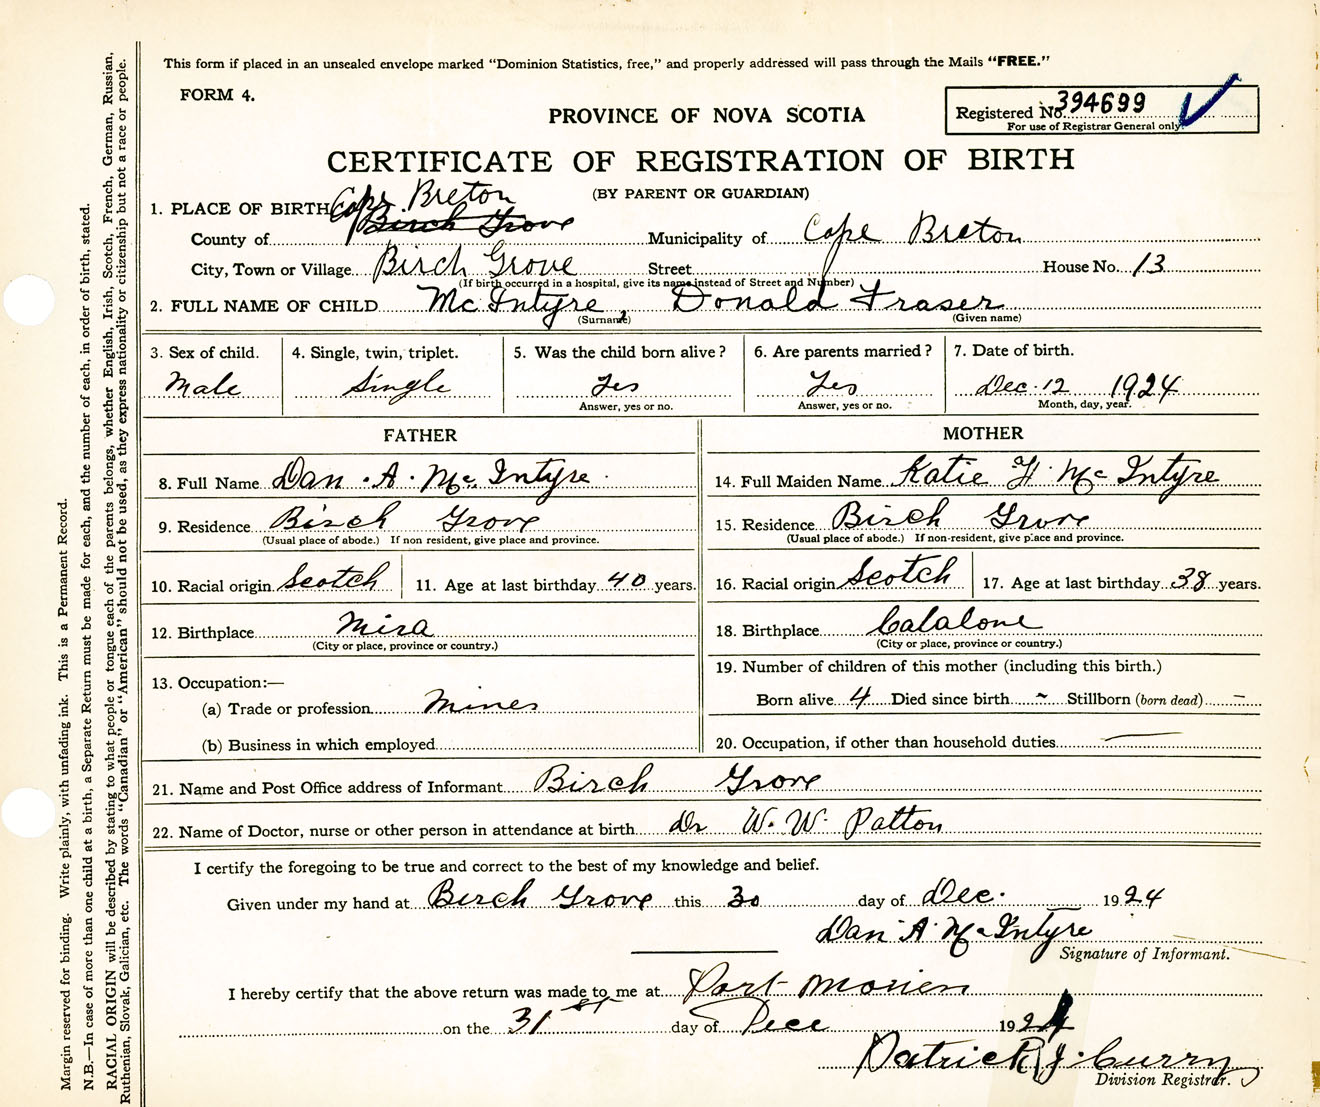 This form if placed in an unsealed envelope marked "Dominion Statistics, free," and properly addressed will pass through the Mails "FREE."
FORM 4.
PROVINCE OF NOVA SCOTIA
Registered No. 394699
For use of Registrar General only.
CERTIFICATE OF REGISTRATION OF BIRTH
(BY PARENT OR GUARDIAN)
1. PLACE OF BIRTH Cape Breton
County of Birch Grove Municipality of Cape Breton
City, Town or Village Birch Grove Street House No. 13
(If birth occurred in a hospital, give its name instead of Street and Number)
2. FULL NAME OF CHILD McIntyre Donald Fraser
(Surname) (Given name)
3. Sex of child. 4. Single, twin, triplet. 5. Was the child born alive? 6. Are parents married? 7. Date of birth.
Male Single Yes Yes Dec. 12 1924
Answer, yes or no. Answer, yes or no. Month, day, year.
FATHER MOTHER
8. Full Name Dan. A. McIntyre 14. Full Maiden Name Katie H. McIntyre
9. Residence Birch Grove 15. Residence Birch Grove
(Usual place of abode.) If non resident, give place and province. (Usual place of abode.) If non-resident, give place and province.
10. Racial origin Scotch 11. Age at last birthday 40 years. 16. Racial origin Scotch 17. Age at last birthday 38 years.
12. Birthplace Mira 18. Birthplace Catalone
(City or place, province or country.) (City or place, province or country.)
13. Occupation:— 19. Number of children of this mother (including this birth.)
(a) Trade or profession Miner Born alive 4 Died since birth ~ Stillborn (born dead) –
(b) Business in which employed 20. Occupation, if other than household duties —
21. Name and Post Office address of Informant Birch Grove
22. Name of Doctor, nurse or other person in attendance at birth Dr W. W. Patton
I certify the foregoing to be true and correct to the best of my knowledge and belief.
Given under my hand at Birch Grove this 30 day of Dec. 1924
Dan A McIntyre
Signature of Informant.
I hereby certify that the above return was made to me at Port Morien
on the 31st day of Dece 1924
Patrick J. Curry
Division Registrar.
Margin reserved for binding. Write plainly, with unfading ink. This is a Permanent Record.
N.B.—In case of more than one child at a birth, a Separate Return must be made for each, and the number of each, in order of birth, stated.
RACIAL ORIGIN will be described by stating to what people or tongue each of the parents belongs, whether English, Irish, Scotch, French, German, Russian,
Ruthenian, Slovak, Galician, etc. The words "Canadian" or "American" should not be used, as they express nationality or citizenship but not a race or people.